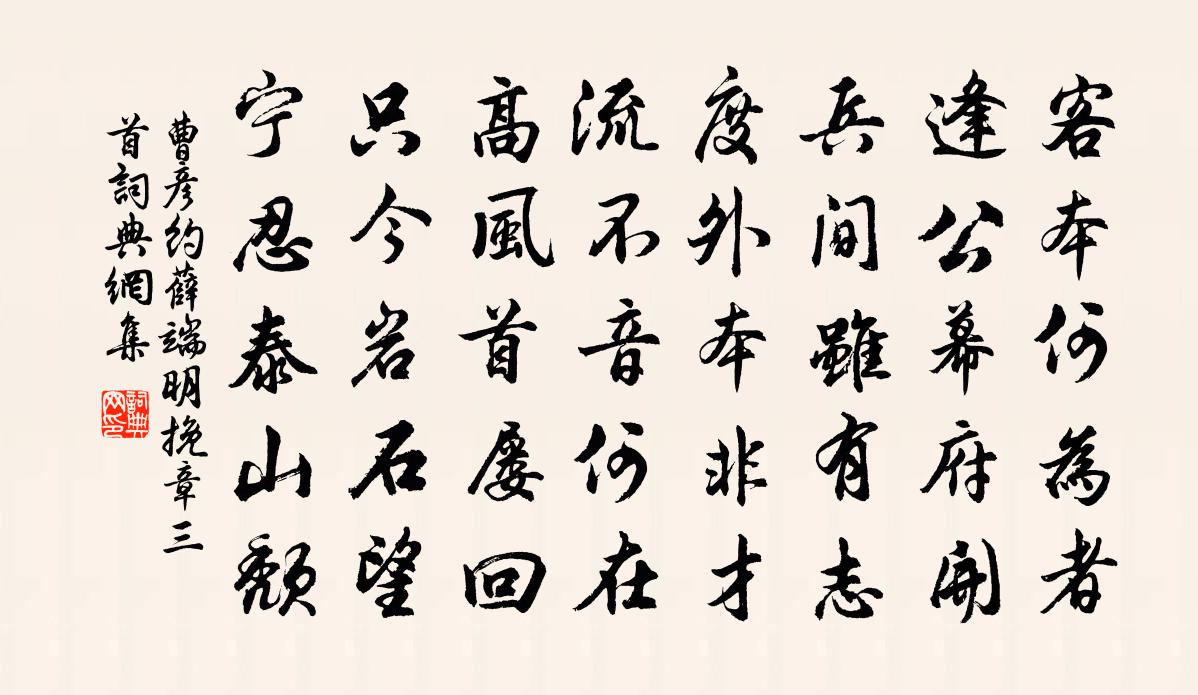 客本何為者
逢公幕府開
兵間雖有志
度外本非才
流不音何在
高風首屡回
只今岩石望
宁忍泰山頹
曹彦約薛端明挽章三
首詞典網集
詞典
网印